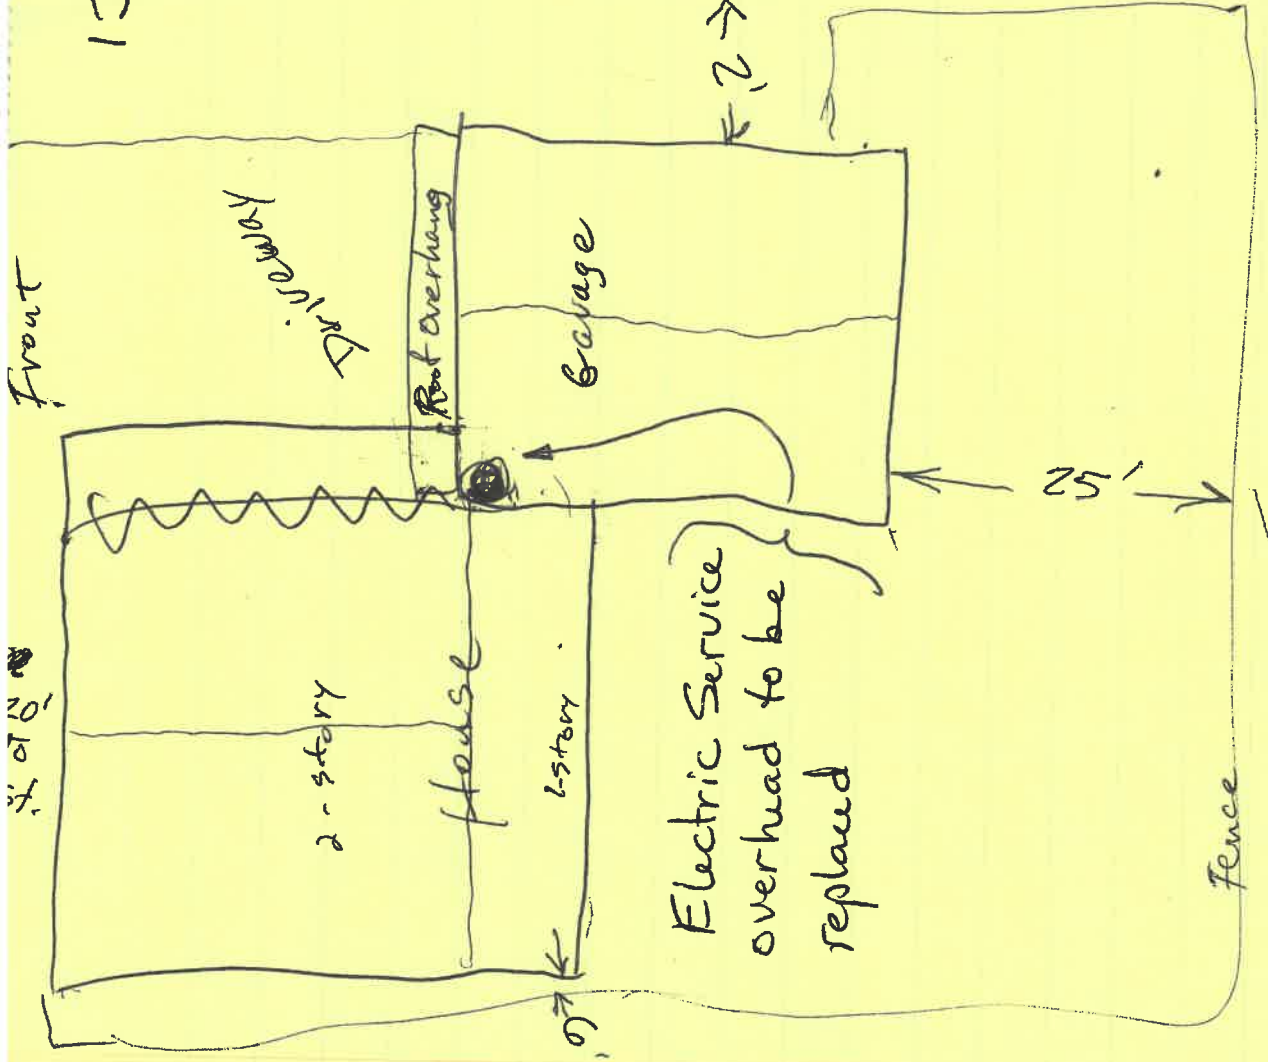 Front
Driveway
Roof overhang
Garage
2-story
House
1-story
Electric Service
overhead to be
replaced
25'
Fence